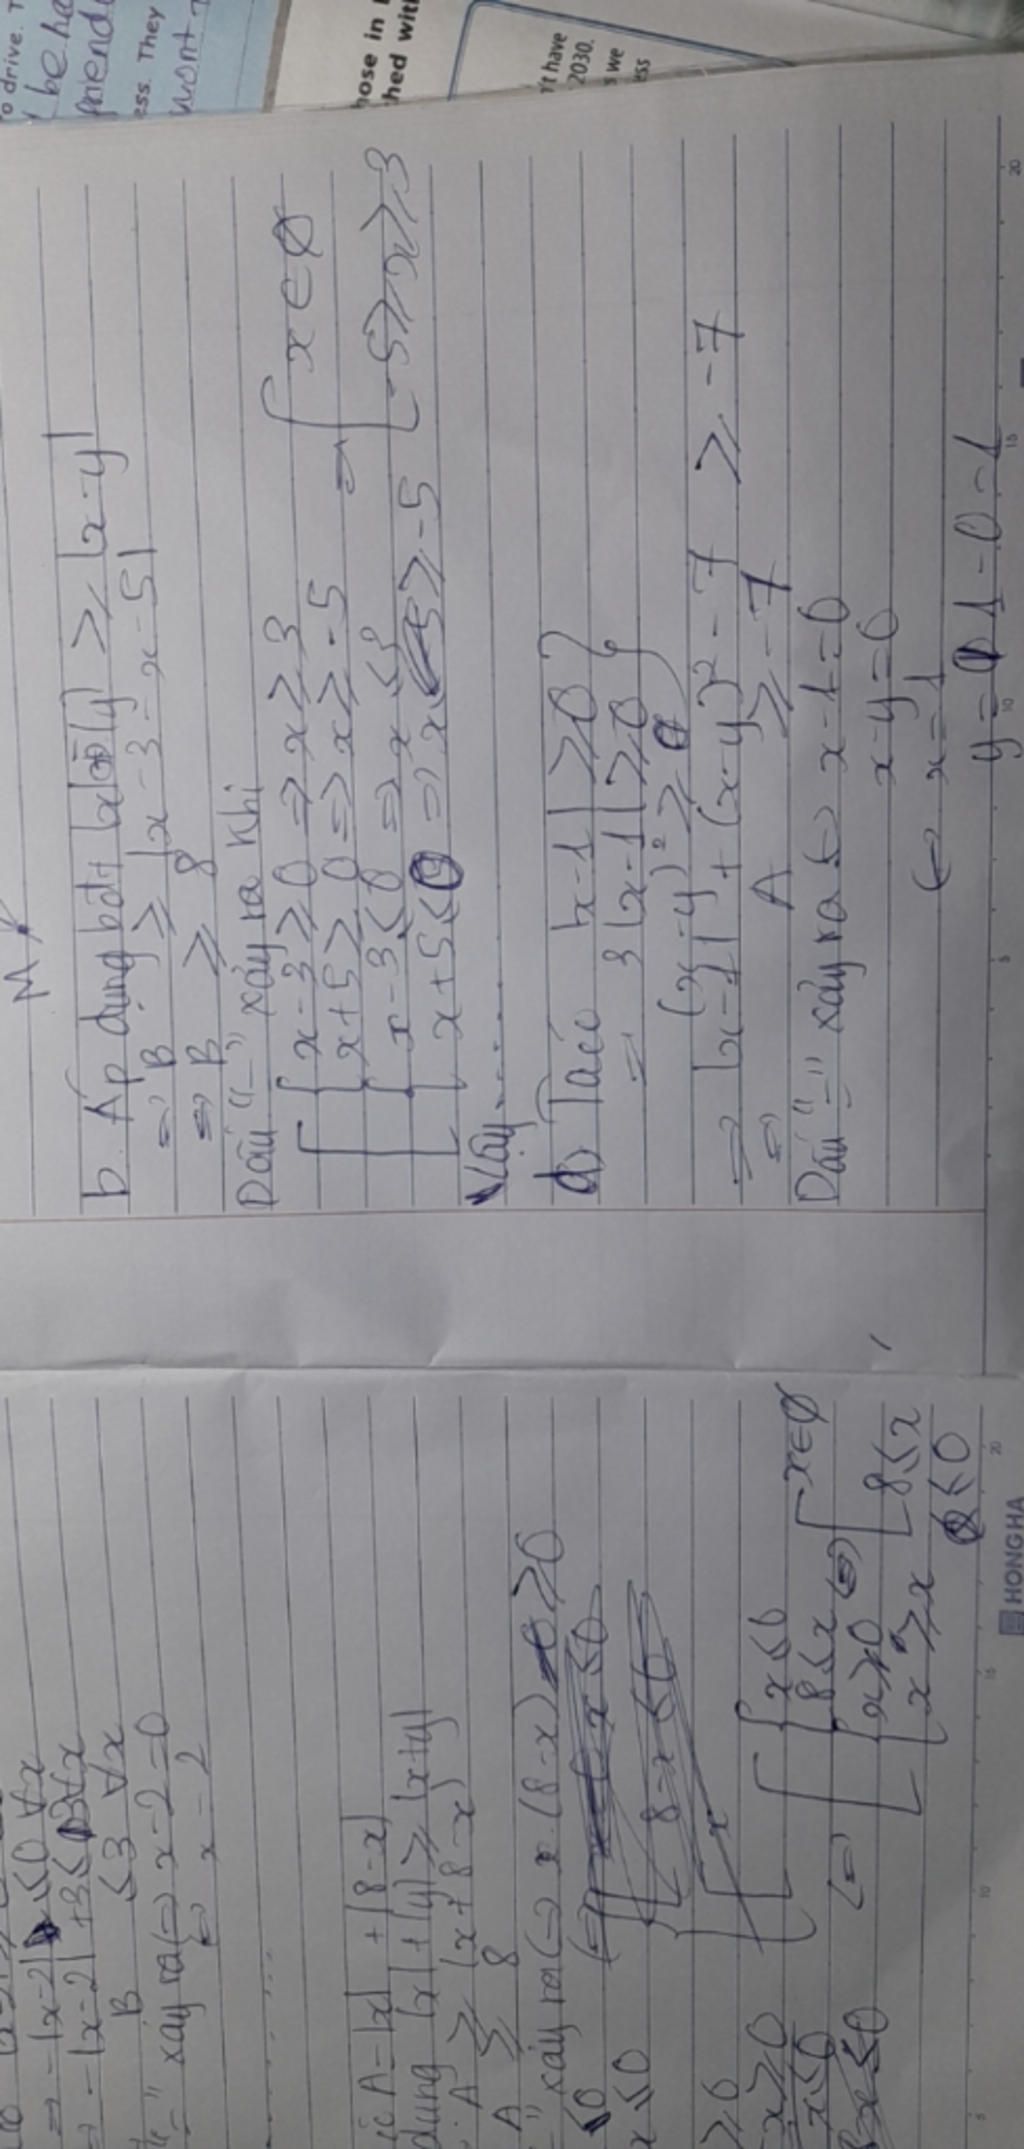 o drive. T
be ha
ess. They
wont
hose in
hed with
n't have
2030.
s we
ess
M
b. Áp dụng bđt |x|+|y| ≥ |x-y|
⇒ B ≥ |x-3-x-5|
⇒ B ≥ 8
Dấu "=" xảy ra khi
x-3 ≥ 0 ⇒ x ≥ 3
x+5 ≥ 0 ⇒ x ≥ -5
x-3 ≤ 0 ⇒ x ≤ 3
x+5 ≤ 0 ⇒ x ≥ -5
⇒ [ x ∈ ∅
-5 ≥ x ≥ 3
Vậy.....
d) Ta có |x-1| ≥ 0
= 3|x-1| ≥ 0
(x-y)² ≥ 0
⇒ |x-1| + (x-y)² - 7 ≥ -7
⇒ A ≥ -7
Dấu "=" xảy ra ⇔ x-1=0
x-y=0
⇔ x=1
y= 1-0=1
⇒ -|x-2| ≤0 ∀x
⇒ -|x-2| +3 ≤ 3 ∀x
B ≤3 ∀x
"=" xảy ra ⇔ x-2=0
⇔ x=2
A=|x| + |8-x|
dụng |x|+|y| ≥ |x+y|
A ≥ |x+8-x|
A ≥ 8
"=" xảy ra ⇔ x.(8-x) ≥0
≤0
x ≤0
≥0
x≥0
x≤0
x ≤0
8≤x
x≥0
x ≥ x
⇔ [ x∈∅
8≤x
≤0
HONG HA
5 10 15 20
5 10 15 20